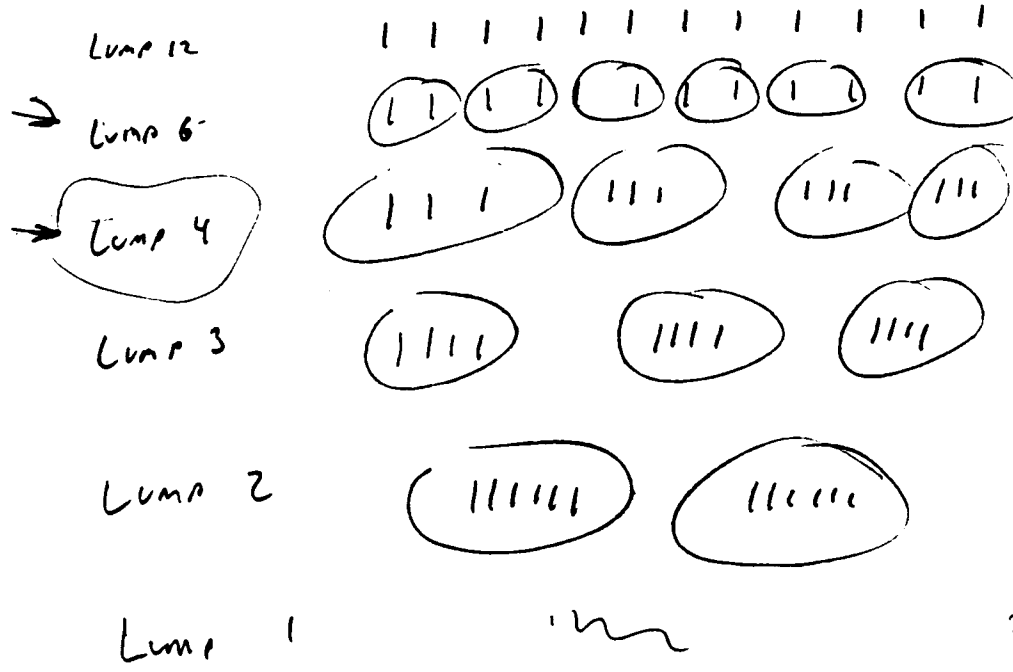 Lump 12
Lump 6
Lump 4
Lump 3
Lump 2
Lump 1